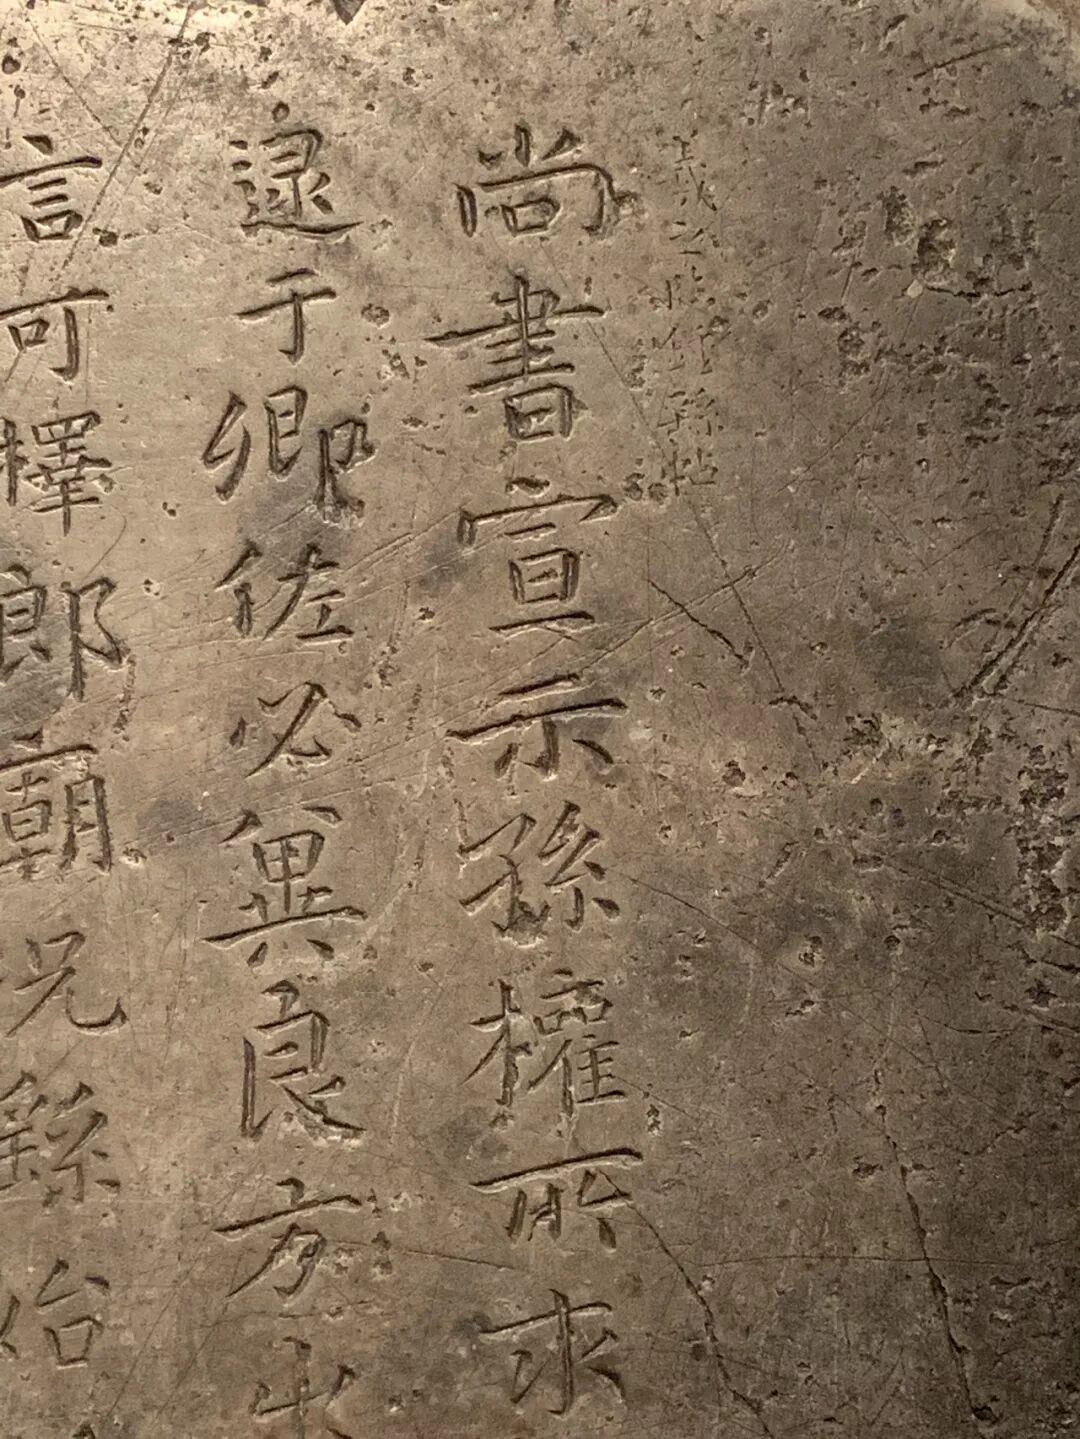 羲之臨鍾繇帖
尚書宣示孫權所求
逮于卿佐必冀良方出
言可擇郎廟況繇始